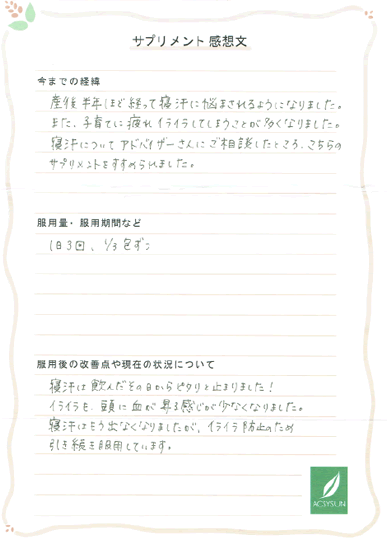 サプリメント 感想文
今までの経緯
産後 半年ほど経って 寝汗に悩まされるようになりました。
また、子育てに疲れ イライラしてしまうことが多くなりました。
寝汗について アドバイザーさんに ご相談したところ、こちらの
サプリメントをすすめられました。
服用量・服用期間など
1日3回、1/3包ずつ
服用後の改善点や現在の状況について
寝汗は飲んだその日からピタリと止まりました！
イライラも、頭に血が昇る感じが少なくなりました。
寝汗はもう出なくなりましたが、イライラ防止のため
引き続き服用しています。
ACSYSUN